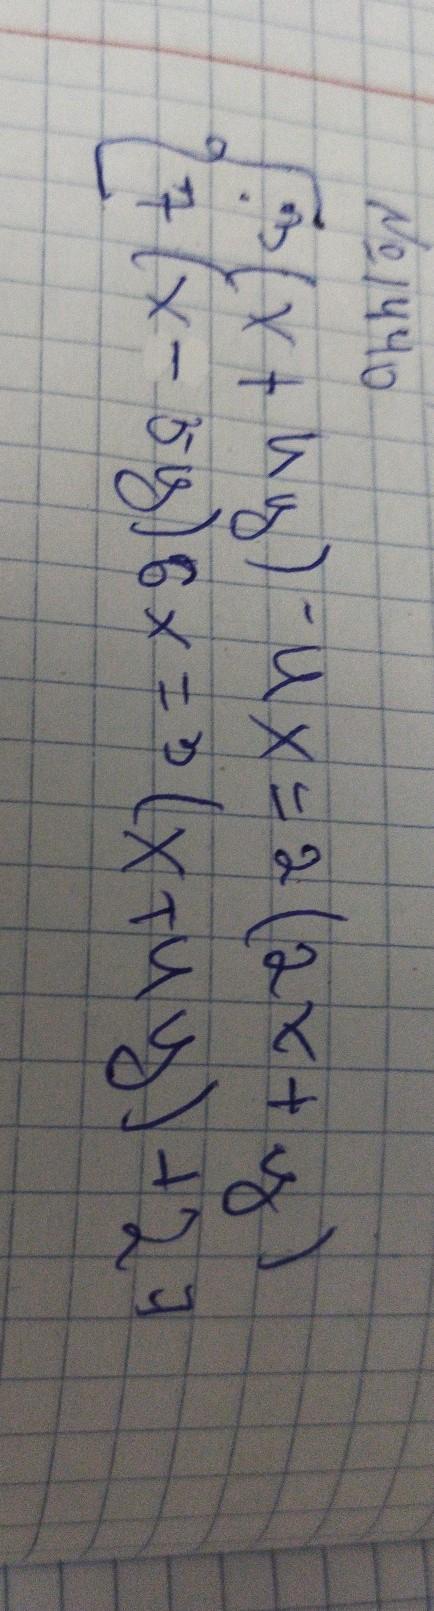 № 1440
3(x + 4y) - 4x = 2(2x + y)
7(x - 5y) 6x = 3(x + 4y) + 27